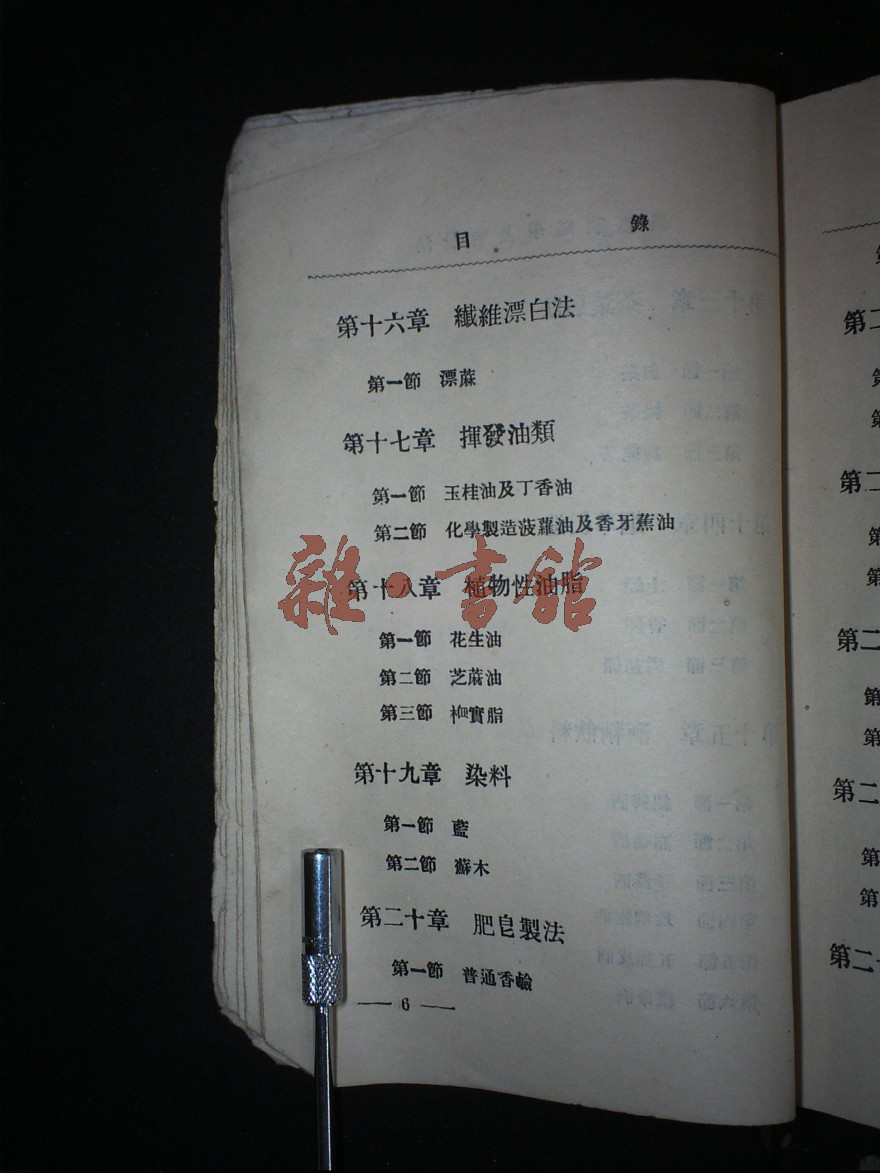 目錄
第十六章 纖維漂白法
第一節 漂蔴
第十七章 揮發油類
第一節 玉桂油及丁香油
第二節 化學製造菠蘿油及香牙蕉油
第十八章 植物性油脂
第一節 花生油
第二節 芝蔴油
第三節 實脂
第十九章 染料
第一節 藍
第二節 蘇木
第二十章 肥皂製法
第一節 普通香鹼
— 6 —
雜·書館